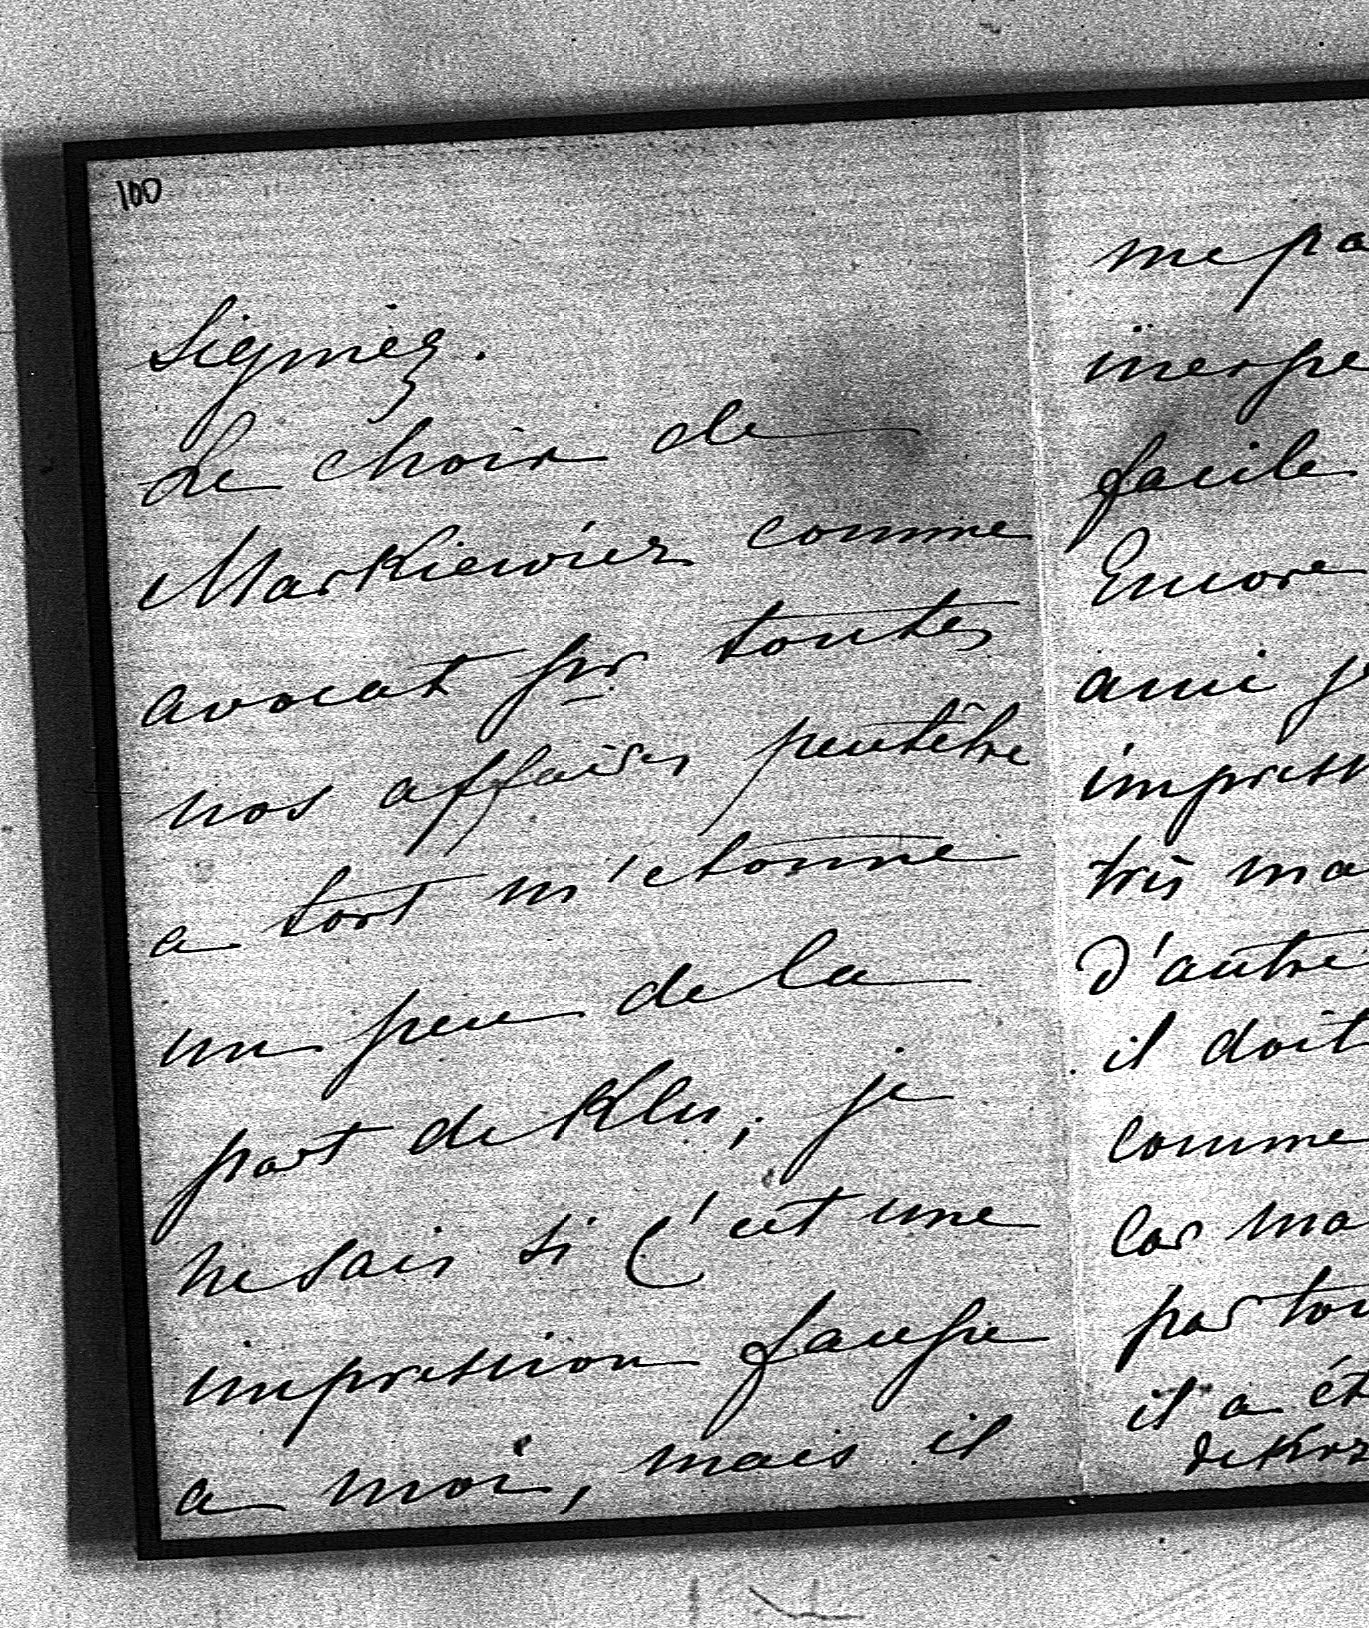 100
Signiez.
Le choix de
Markiewicz comme
avocat pr toutes
nos affaires peutêtre
a tort m'etonne
un peu de la
part de Klu, je
ne sais si c'est une
impression fausse
a moi, mais il
me pa
inexpe
facile
Encore
ami j
impress
très ma
d'autre
il doit
comme
Car ma
par tou
il a ét
de Krz